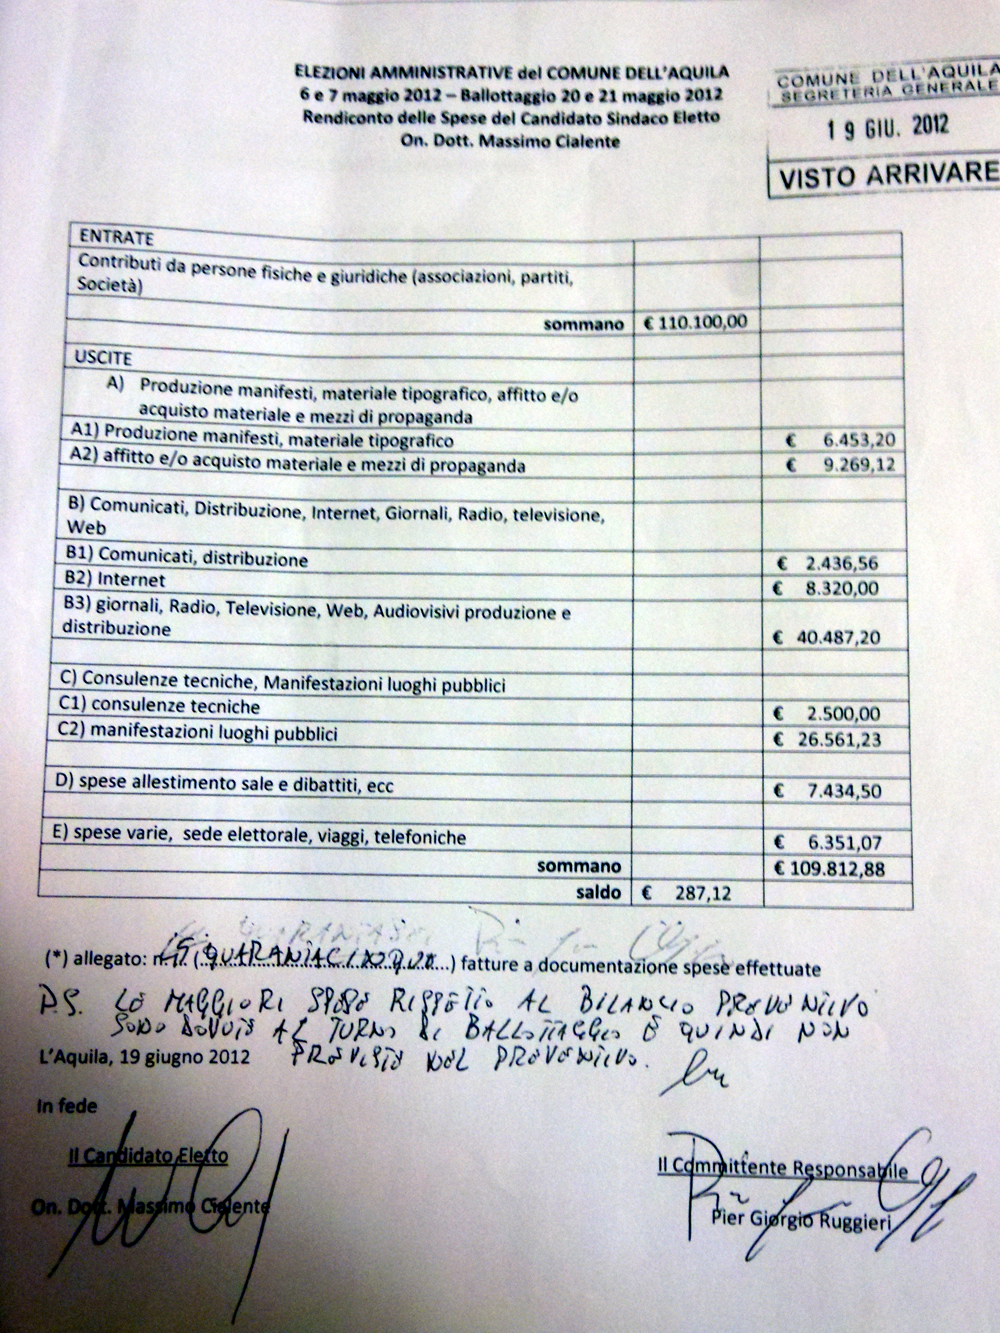 ELEZIONI AMMINISTRATIVE del COMUNE DELL'AQUILA
6 e 7 maggio 2012 – Ballottaggio 20 e 21 maggio 2012
Rendiconto delle Spese del Candidato Sindaco Eletto
On. Dott. Massimo Cialente
COMUNE DELL'AQUILA
SEGRETERIA GENERALE
19 GIU. 2012
VISTO ARRIVARE
ENTRATE
Contributi da persone fisiche e giuridiche (associazioni, partiti,
Società)
sommano € 110.100,00
USCITE
A) Produzione manifesti, materiale tipografico, affitto e/o
acquisto materiale e mezzi di propaganda
A1) Produzione manifesti, materiale tipografico € 6.453,20
A2) affitto e/o acquisto materiale e mezzi di propaganda € 9.269,12
B) Comunicati, Distribuzione, Internet, Giornali, Radio, televisione,
Web
B1) Comunicati, distribuzione € 2.436,56
B2) Internet € 8.320,00
B3) giornali, Radio, Televisione, Web, Audiovisivi produzione e
distribuzione € 40.487,20
C) Consulenze tecniche, Manifestazioni luoghi pubblici
C1) consulenze tecniche € 2.500,00
C2) manifestazioni luoghi pubblici € 26.561,23
D) spese allestimento sale e dibattiti, ecc € 7.434,50
E) spese varie, sede elettorale, viaggi, telefoniche € 6.351,07
sommano € 109.812,88
saldo € 287,12
(*) allegato: n. 45 (QUARANTACINQUE) fatture a documentazione spese effettuate
P.S. LE MAGGIORI SPESE RISPETTO AL BILANCIO PREVENTIVO
SONO DOVUTE AL TURNO DI BALLOTTAGGIO E QUINDI NON
PREVISTE NEL PREVENTIVO.
L'Aquila, 19 giugno 2012
In fede
Il Candidato Eletto
On. Dott. Massimo Cialente
Il Committente Responsabile
Pier Giorgio Ruggieri